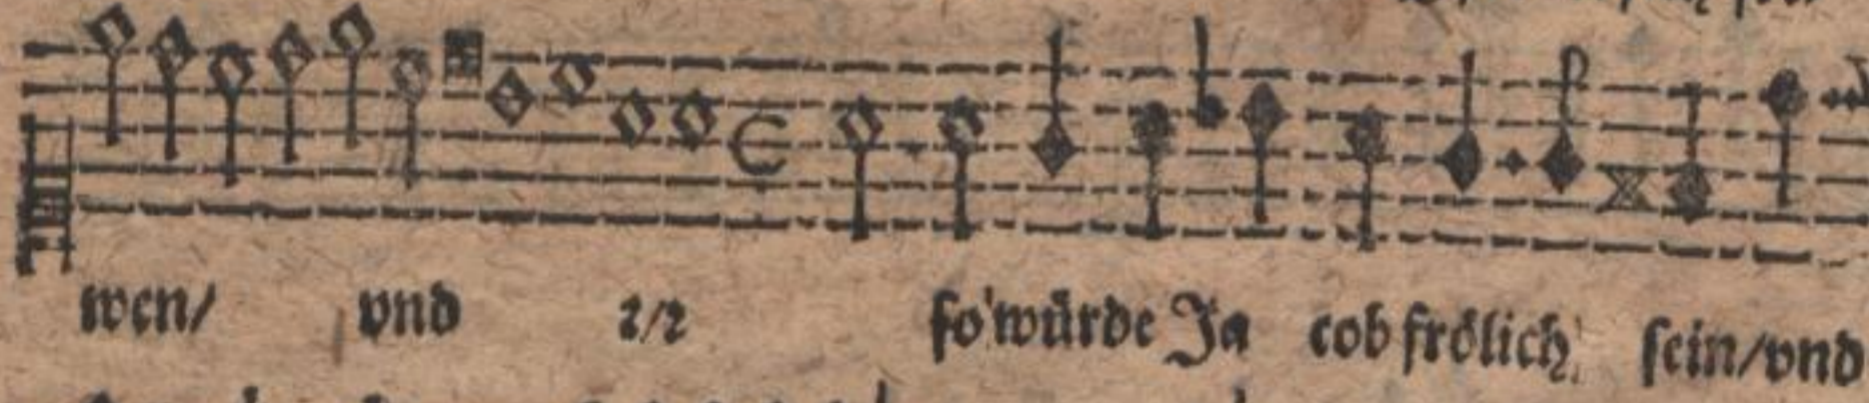 wen/ vnd ꝛ/ꝛ so wuͤrde Ja cob froͤlich sein/vnd